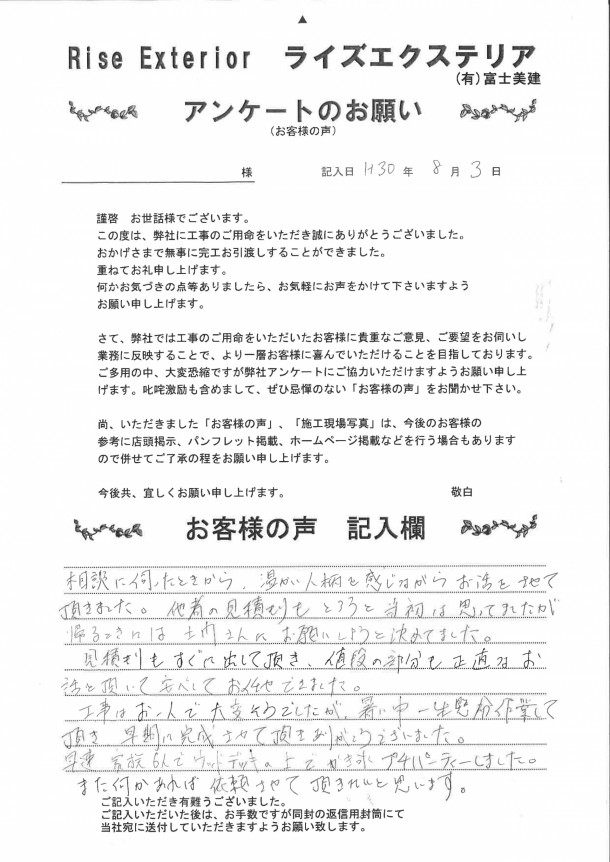 Rise Exterior ライズエクステリア
(有)富士美建
アンケートのお願い
(お客様の声)
様 記入日 H30 年 8 月 3 日
謹啓 お世話様でございます。
この度は、弊社に工事のご用命をいただき誠にありがとうございました。
おかげさまで無事に完工お引渡しすることができました。
重ねてお礼申し上げます。
何かお気づきの点等ありましたら、お気軽にお声をかけて下さいますよう
お願い申し上げます。
さて、弊社では工事のご用命をいただいたお客様に貴重なご意見、ご要望をお伺いし
業務に反映することで、より一層お客様に喜んでいただけることを目指しております。
ご多用の中、大変恐縮ですが弊社アンケートにご協力いただけますようお願い申し上
げます。叱咤激励も含めまして、ぜひ忌憚のない「お客様の声」をお聞かせ下さい。
尚、いただきました「お客様の声」、「施工現場写真」は、今後のお客様の
参考に店頭掲示、パンフレット掲載、ホームページ掲載などを行う場合もあります
ので併せてご了承の程をお願い申し上げます。
今後共、宜しくお願い申し上げます。 敬白
お客様の声 記入欄
相談に伺ったときから、温かい人柄を感じながらお話をさせて
頂きました。他者の見積もりもとろうと当初は思ってましたが
帰るときには さんにお願いしようと決めてました。
見積もりもすぐに出して頂き、値段の部分も正直なお
話を頂いて安心してお任せできました。
工事はお一人で大変そうでしたが、暑い中一生懸命作業して
頂き早期に完成させて頂きありがとうございました。
早速家族6人でウッドデッキの上でかき氷プチパーティーしました。
また何かあれば依頼させて頂きたいと思います。
ご記入いただき有難うございました。
ご記入いただいた後は、お手数ですが同封の返信用封筒にて
当社宛に送付していただきますようお願い致します。